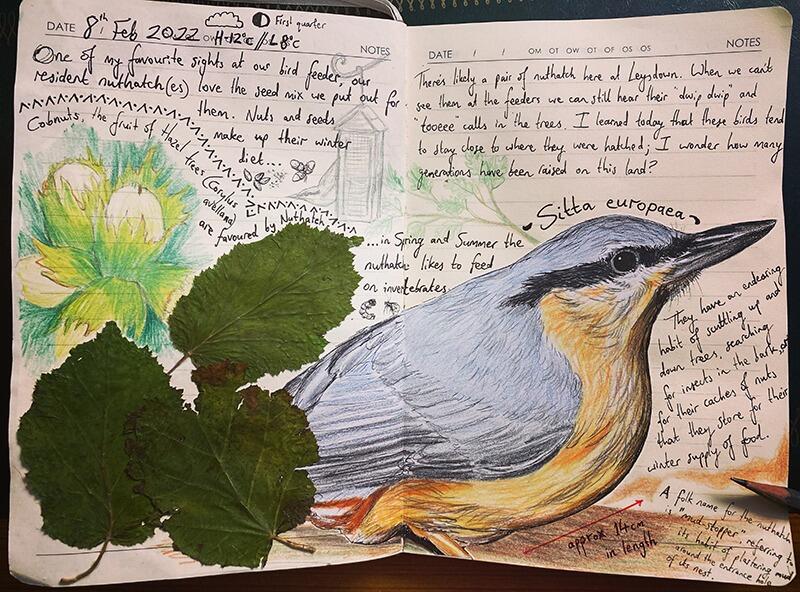 DATE 8th Feb 2022
First quarter
H-12°c // L 8°c
NOTES
One of my favourite sights at our bird feeder, our
resident nuthatch(es) love the seed mix we put out for
them. Nuts and seeds
make up their winter
diet...
Cobnuts, the fruit of Hazel trees (Corylus
avellana)
are favoured by Nuthatch
...in Spring and Summer the
nuthatch likes to feed
on invertebrates
DATE / / OM OT OW OT OF OS OS NOTES
There's likely a pair of nuthatch here at Leysdown. When we can't
see them at the feeders we can still hear their "dwip dwip" and
"toeee" calls in the trees. I learned today that these birds tend
to stay close to where they were hatched; I wonder how many
generations have been raised on this land?
Sitta europaea
They have an endearing
habit of scuttling up and
down trees, searching
for insects in the bark, or
for their caches of nuts
that they store for their
winter supply of food.
approx 14cm
in length
A folk name for the nuthatch
is "mud-stopper" referring to
its habit of plastering mud
around the entrance hole
of its nest.